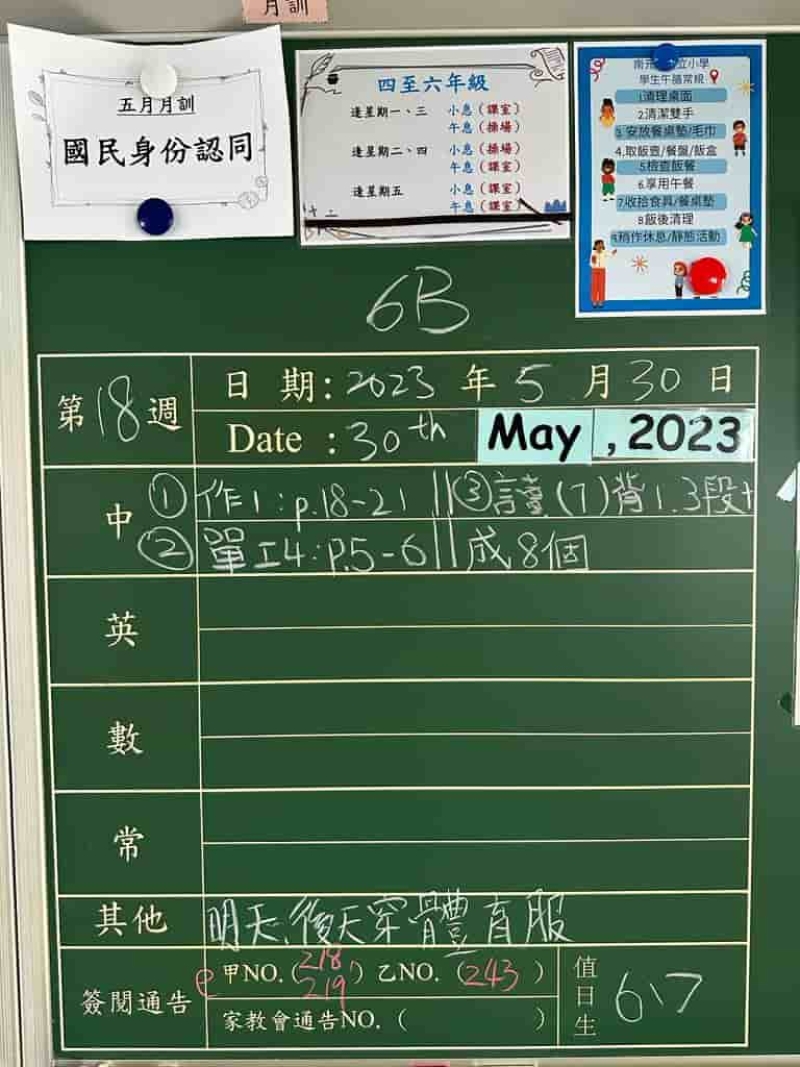 月訓
五月月訓
國民身份認同
四至六年級
逢星期一、三 小息（課室）
午息（操場）
逢星期二、四 小息（操場）
午息（課室）
逢星期五 小息（課室）
午息（課室）
立小學
學生午膳常規
1.清理桌面
2.清潔雙手
3.安放餐桌墊/毛巾
4.取飯壺/餐盤/飯盒
5.檢查飯餐
6.享用午餐
7.收拾食具/餐桌墊
8.飯後清理
9.稍作休息/靜態活動
6B
第18週 日 期:2023 年 5 月 30 日
Date :30th May , 2023
中 ① 作1:p.18-21 || ③ 讀(7)背1.3段+
② 單工4:P.5-6 || 成8個
英
數
常
其他 明天、後天穿體育服
簽閱通告 e 甲NO.(218 219) 乙NO.(243 )
家教會通告NO.( )
值日生 6、7